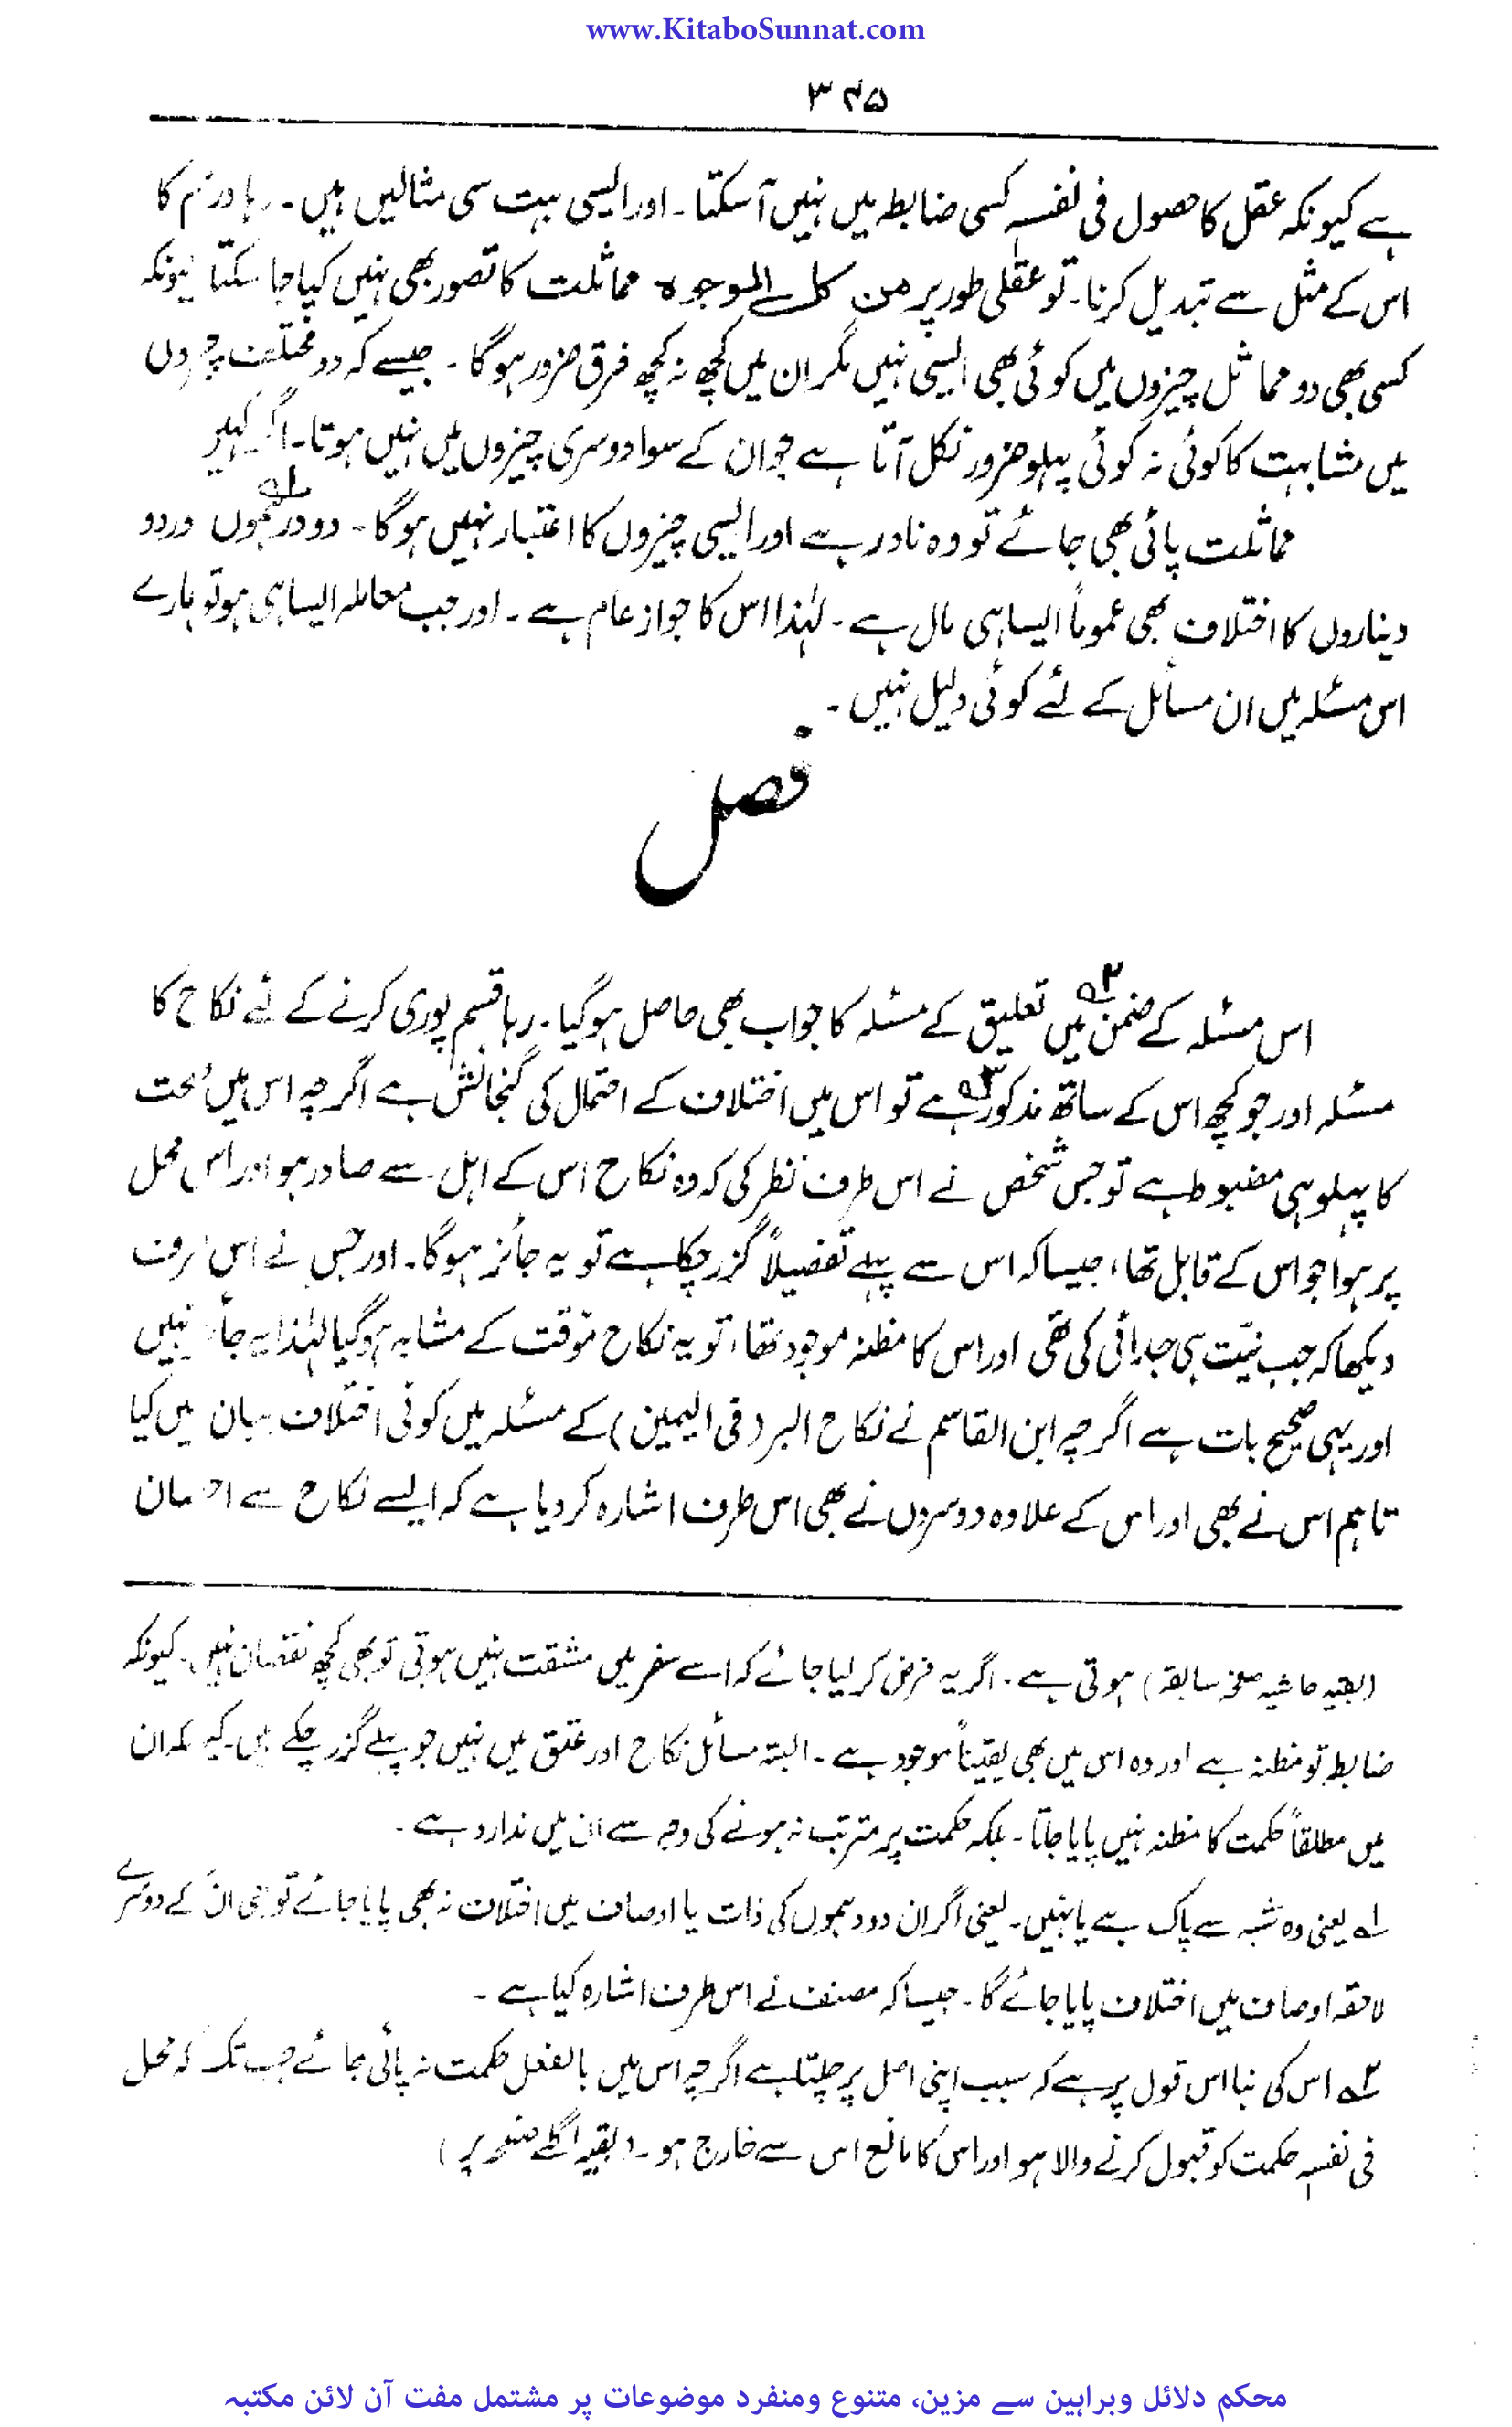 www.KitaboSunnat.com
۳۴۵
ہے کیونکہ عقل کا حصول فی نفسہٖ کسی ضابطہ میں نہیں آسکتا۔ اور ایسی بہت سی مثالیں ہیں۔ رہا درہم کا
اس کے مثل سے تبدیل کرنا۔ تو عقلی طور پر من کل الوجوہ مماثلت کا تصور بھی نہیں کیا جا سکتا کیونکہ
کسی بھی دو مماثل چیزوں میں کوئی بھی ایسی نہیں مگر ان میں کچھ نہ کچھ فرق ضرور ہوگا۔ جیسے کہ دو مختلف چیزوں
میں مشابہت کا کوئی نہ کوئی پہلو ضرور نکل آتا ہے جو ان کے سوا دوسری چیزوں میں نہیں ہوتا۔ اگر کہیں
مماثلت پائی بھی جائے تو وہ نادر ہے اور ایسی چیزوں کا اعتبار نہیں ہوگا۔ دو درہموں ۱؎ اور دو
دیناروں کا اختلاف بھی عموماً ایسا ہی مال ہے۔ لہٰذا اس کا جواز عام ہے۔ اور جب معاملہ ایسا ہی ہو تو ہمارے
اس مسئلہ میں ان مسائل کے لئے کوئی دلیل نہیں۔
فصل
اس مسئلہ کے ضمن ۲؎ میں تعلیق کے مسئلہ کا جواب بھی حاصل ہوگیا۔ رہا قسم پوری کرنے کے لئے نکاح کا
مسئلہ اور جو کچھ اس کے ساتھ مذکور ۳؎ ہے تو اس میں اختلاف کے احتمال کی گنجائش ہے اگرچہ اس میں صحت
کا پہلو ہی مضبوط ہے تو جس شخص نے اس طرف نظر کی کہ وہ نکاح اس کے اہل سے صادر ہو اور اس محل
پر ہوا جو اس کے قابل تھا، جیسا کہ اس سے پہلے تفصیلاً گزر چکا ہے تو یہ جائز ہوگا۔ اور جس نے اس طرف
دیکھا کہ جب نیّت ہی جدائی کی تھی اور اس کا مظنہ موجود تھا، تو یہ نکاح موقت کے مشابہ ہوگیا لہٰذا یہ جائز نہیں
اور یہی صحیح بات ہے اگرچہ ابن القاسم نے نکاح البر (فی الیمین) کے مسئلہ میں کوئی اختلاف بیان نہیں کیا
تاہم اس نے بھی اور اس کے علاوہ دوسروں نے بھی اس طرف اشارہ کر دیا ہے کہ ایسے نکاح سے احصان
(بقیہ حاشیہ صفحہ سابقہ) ہوتی ہے۔ اگر یہ فرض کر لیا جائے کہ اسے سفر میں مشقت نہیں ہوتی تو بھی کچھ نقصان نہیں۔ کیونکہ
ضابطہ تو مظنہ ہے اور وہ اس میں بھی یقیناً موجود ہے۔ البتہ مسائل نکاح اور عتق میں نہیں جو پہلے گزر چکے ہیں۔ کیونکہ ان
میں مطلقاً حکمت کا مظنہ نہیں پایا جاتا۔ بلکہ حکمت پر مترتب نہ ہونے کی وجہ سے ان میں ندارد ہے۔
۱؎ یعنی وہ شبہ سے پاک ہے یا نہیں۔ یعنی اگر ان دو درہموں کی ذات یا اوصاف میں اختلاف نہ بھی پایا جائے تو بھی ان کے دوسرے
لاحقہ اوصاف میں اختلاف پایا جائے گا۔ جیسا کہ مصنف نے اس طرف اشارہ کیا ہے۔
۲؎ اس کی بنا اس قول پر ہے کہ سبب اپنی اصل پر چلتا ہے اگرچہ اس میں بالفعل حکمت نہ پائی جائے جب تک کہ محل
فی نفسہٖ حکمت کو قبول کرنے والا ہو اور اس کا مانع اس سے خارج ہو۔ (بقیہ اگلے صفحہ پر)
محکم دلائل وبراہین سے مزین، متنوع ومنفرد موضوعات پر مشتمل مفت آن لائن مکتبہ